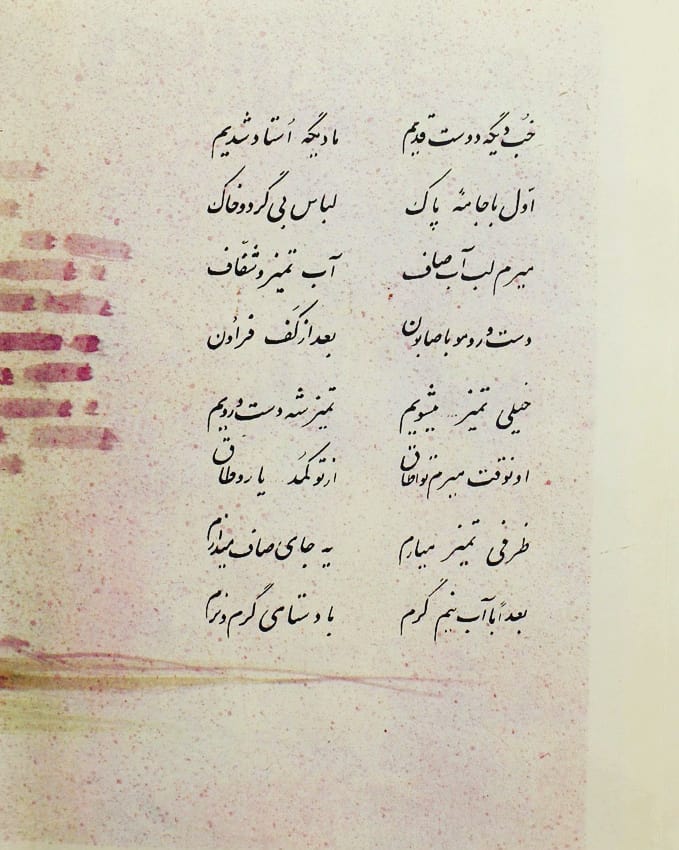 خُب دیگه دوست قدیم ما دیگه اُستاد شدیم
اَول با جامهٔ پاک لباس بی گرد و خاک
میرم لب آب صاف آب تمیز و شفّاف
دست و رومو با صابون بعد از کَف فراوُن
خیلی تمیز میشویم تمیز شه دست و رویم
اونوقت میرم تو اطاق از تو کمُد یا رو طاق
ظرفی تمیز میارم یه جای صاف میذارم
بعداً با آب نیم گرم با دستای گرم و نرم